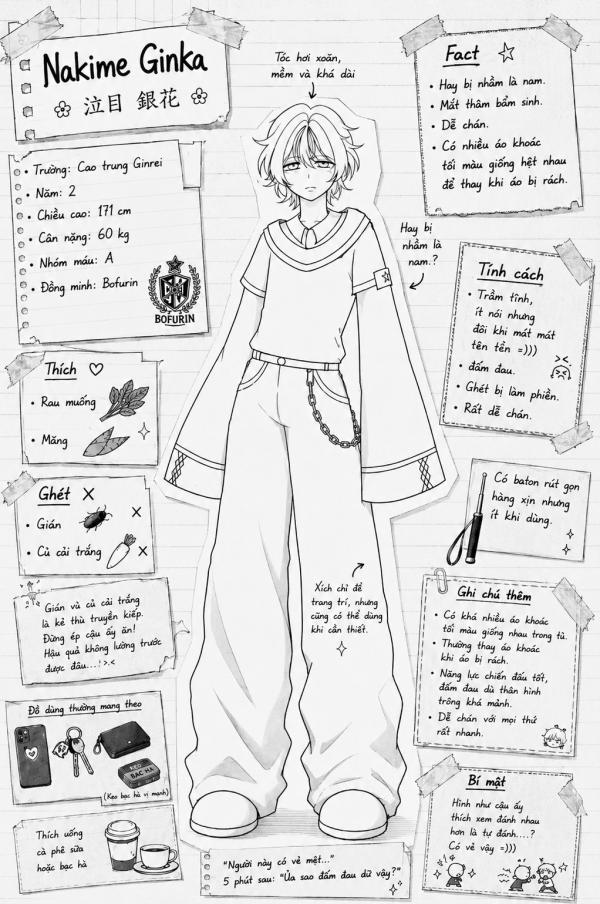 Nakime Ginka
泣目 銀花
Tóc hơi xoăn,
mềm và khá dài
Fact
• Hay bị nhầm là nam.
• Mắt thâm bẩm sinh.
• Dễ chán.
• Có nhiều áo khoác
tối màu giống hệt nhau
để thay khi áo bị rách.
• Trường: Cao trung Ginrei
• Năm: 2
• Chiều cao: 171 cm
• Cân nặng: 60 kg
• Nhóm máu: A
• Đồng minh: Bofurin
BOFURIN
Hay bị
nhầm là
nam.?
Tính cách
• Trầm tĩnh,
ít nói nhưng
đôi khi mát mát
tên tển =)))
• đấm đau.
• Ghét bị làm phiền.
• Rất dễ chán.
Thích ♡
• Rau muống
• Măng
Ghét X
• Gián
• Củ cải trắng
Có baton rút gọn
hàng xịn nhưng
ít khi dùng.
Gián và củ cải trắng
là kẻ thù truyền kiếp.
Đừng ép cậu ấy ăn!
Hậu quả không lường trước
được đâu...! >.<
Xích chỉ để
trang trí, nhưng
cũng có thể dùng
khi cần thiết.
Ghi chú thêm
• Có khá nhiều áo khoác
tối màu giống nhau trong tủ.
• Thường thay áo khoác
khi áo bị rách.
• Năng lực chiến đấu tốt,
đấm đau dù thân hình
trông khá mảnh.
• Dễ chán với mọi thứ
rất nhanh.
Đồ dùng thường mang theo
KẸO
BẠC HÀ
(Kẹo bạc hà vị mạnh)
Bí mật
Hình như cậu ấy
thích xem đánh nhau
hơn là tự đánh....?
Có vẻ vậy =)))
Thích uống
cà phê sữa
hoặc bạc hà
"Người này có vẻ mệt..."
5 phút sau: "Ủa sao đấm đau dữ vậy?"